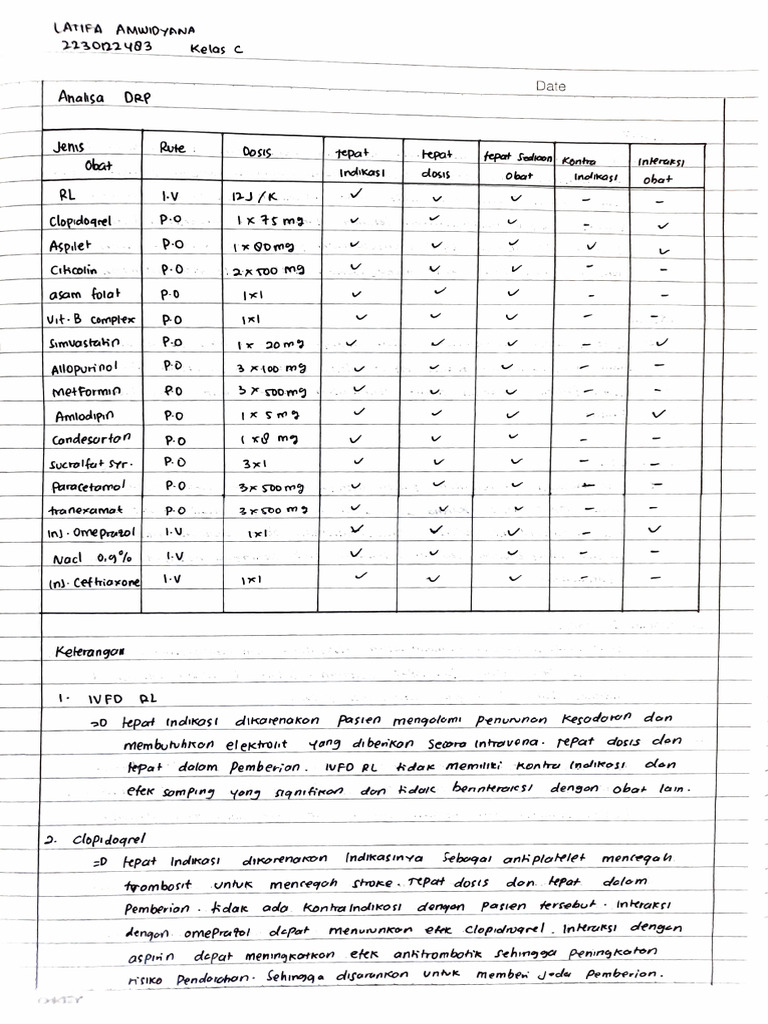 LATIFA AMWIDYANA
2230122483 Kelas C
Date
Analisa DRP
Jenis Obat Rute Dosis tepat indikasi tepat dosis tepat Sediaan obat Kontra indikasi interaksi obat
RL I.V 12J/K ✓ ✓ ✓ - -
Clopidogrel P.O 1 x 75 mg ✓ ✓ ✓ - ✓
Aspilet P.O 1 x 80 mg ✓ ✓ ✓ ✓ ✓
Citicolin P.O 2 x 500 mg ✓ ✓ ✓ - -
asam folat P.O 1x1 ✓ ✓ ✓ - -
Vit. B complex P.O 1x1 ✓ ✓ ✓ - -
Simvastatin P.O 1 x 20 mg ✓ ✓ ✓ - ✓
Allopurinol P.O 3 x 100 mg ✓ ✓ ✓ - -
Metformin P.O 3 x 500 mg ✓ ✓ ✓ - -
Amlodipin P.O 1 x 5 mg ✓ ✓ ✓ - ✓
Candesartan P.O 1 x 8 mg ✓ ✓ ✓ - -
Sucralfat syr. P.O 3x1 ✓ ✓ ✓ - -
Paracetamol P.O 3x500 mg ✓ ✓ ✓ - -
tranexamat P.O 3x500 mg ✓ ✓ ✓ - -
Inj. Omeprazol I.V 1x1 ✓ ✓ ✓ - ✓
Nacl 0,9% I.V ✓ ✓ ✓ - -
Inj. Ceftriaxone I.V 1x1 ✓ ✓ ✓ - -
Keterangan
1. IVFD RL
=D tepat indikasi dikarenakan Pasien mengalami Penurunan Kesadaran dan
membutuhkan elektrolit yang diberikan secara intravena. tepat dosis dan
tepat dalam Pemberian. IVFD RL tidak memiliki Kontra indikasi dan
efek samping yang signifikan dan tidak berinteraksi dengan obat lain.
2. Clopidogrel
=D tepat indikasi dikarenakan Indikasinya Sebagai antiplatelet mencegah
trombosit untuk mencegah stroke. tepat dosis dan tepat dalam
Pemberian. tidak ada Kontraindikasi dengan pasien tersebut. interaksi
dengan omeprazol dapat menurunkan efek Clopidogrel. Interaksi dengan
aspirin dapat meningkatkan efek antitrombotik sehingga peningkatan
risiko Pendarahan. Sehingga disarankan untuk memberi jeda pemberian.